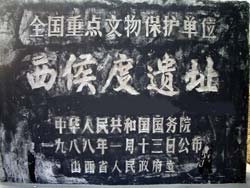 全国重点文物保护单位
西侯度遗址
中华人民共和国国务院
一九八八年一月十三日公布
山西省人民政府立